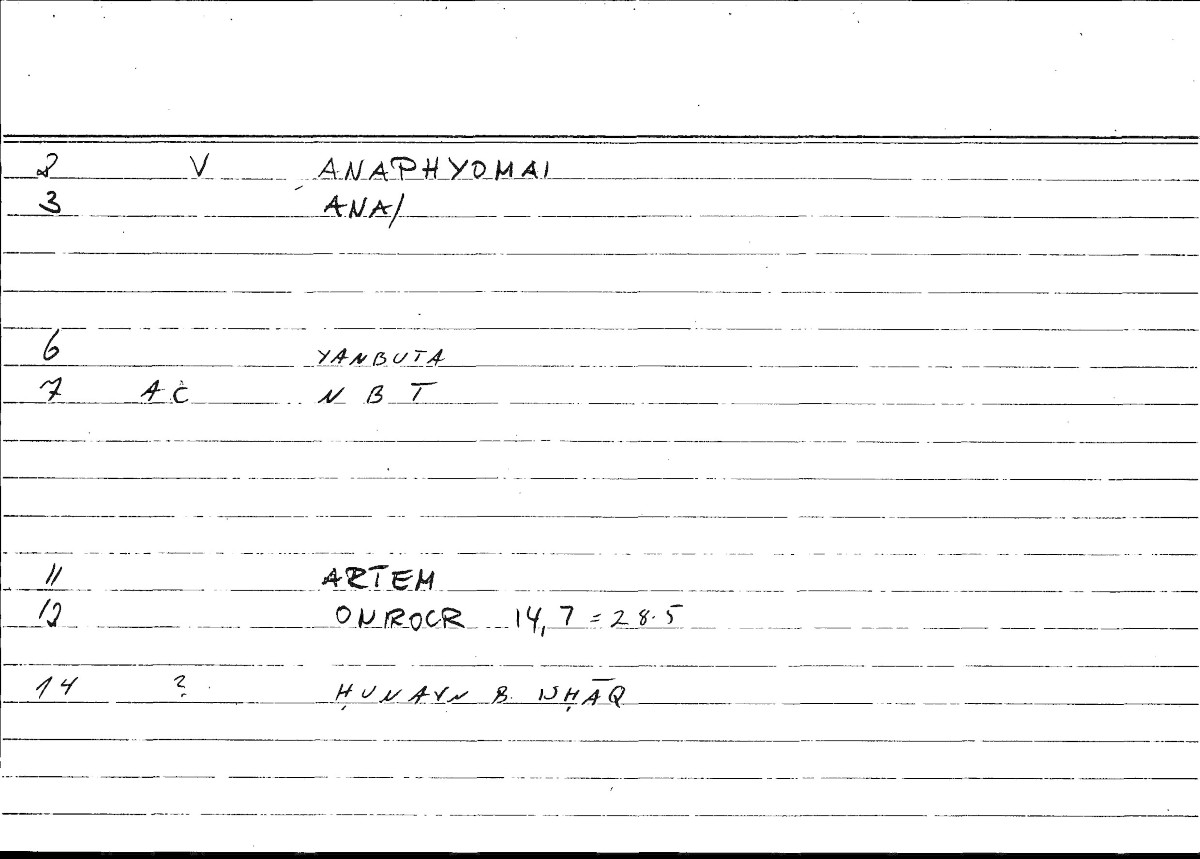 2 V ANAPHYOMAI
3 ANA/
6 YANBUTA
7 AC NBT
11 ARTEM
12 ONIROCR 14,7 = 28.5
14 ? ḤUNAYN B. ISḤĀQ